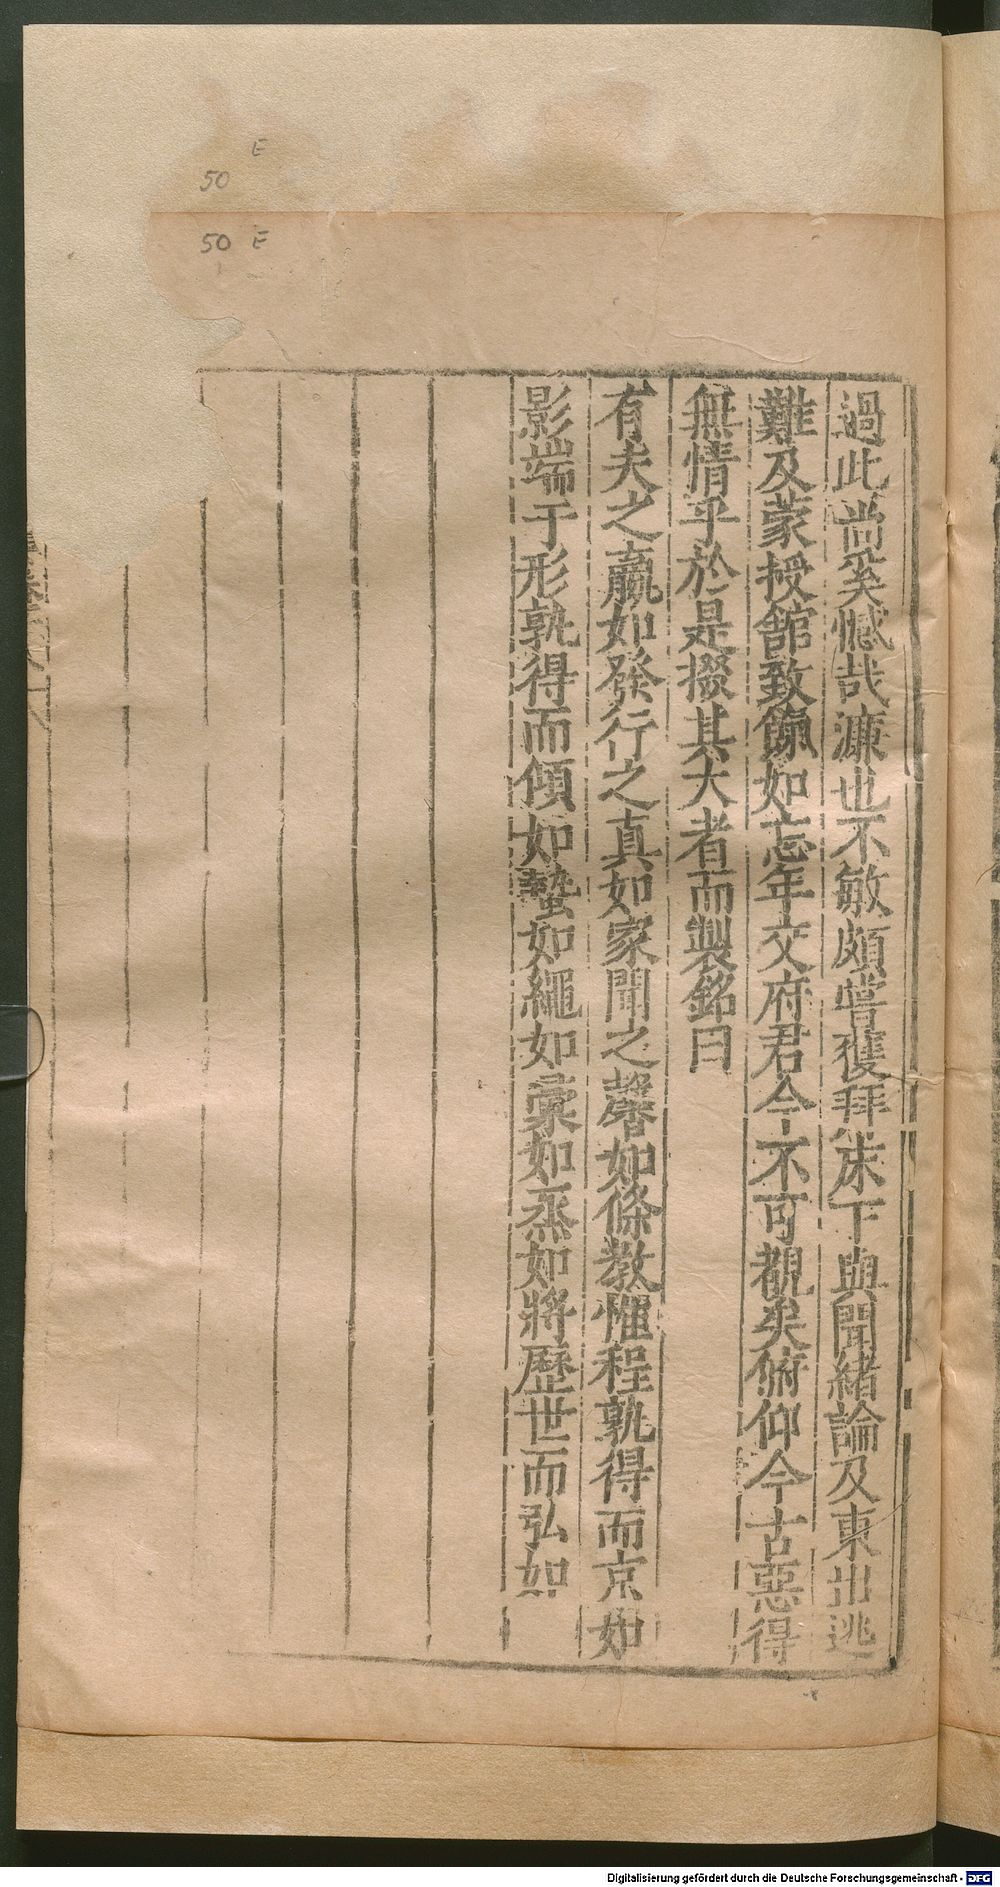 過此尚奚憾哉濂也不敏頗嘗獲拜床下與聞緒論及東出逃
難及蒙授館致餼如忘年交府君今不可覩矣俯仰今古惡得
無情乎於是掇其大者而製銘曰
有夫之贏如發行之真如家聞之馨如條教惟程孰得而京如
影端于形孰得而傾如蟄如繩如彙如烝如將歷世而弘如
E
50
50 E
Digitalisierung gefördert durch die Deutsche Forschungsgemeinschaft - DFG